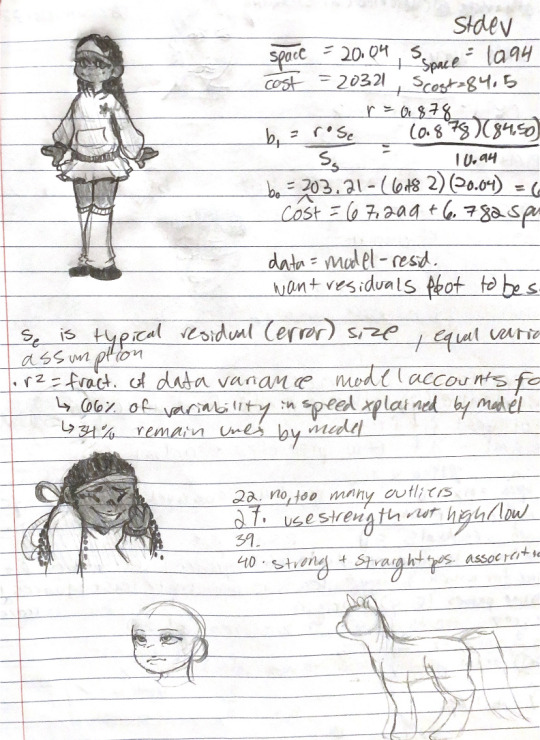 stdev
space = 20.04, s space = 10.94
cost = 203.21, s cost = 84.5
r = 0.878
b₁ = r·sc / Ss = (0.878)(84.50) / 10.94
b₀ = 203.21 - (6.782)(20.04) = 6
cost = 67.299 + 6.782 spa
data = model - resid.
want residuals plot to be s
Se is typical residual (error) size, equal varia
assumption
· r² = fract. of data variance model accounts fo
↳ 66% of variability in speed xplained by model
↳ 34% remain unex by model
22. no, too many outliers
27. use strength not high low
39.
40. strong + straight pos associatio